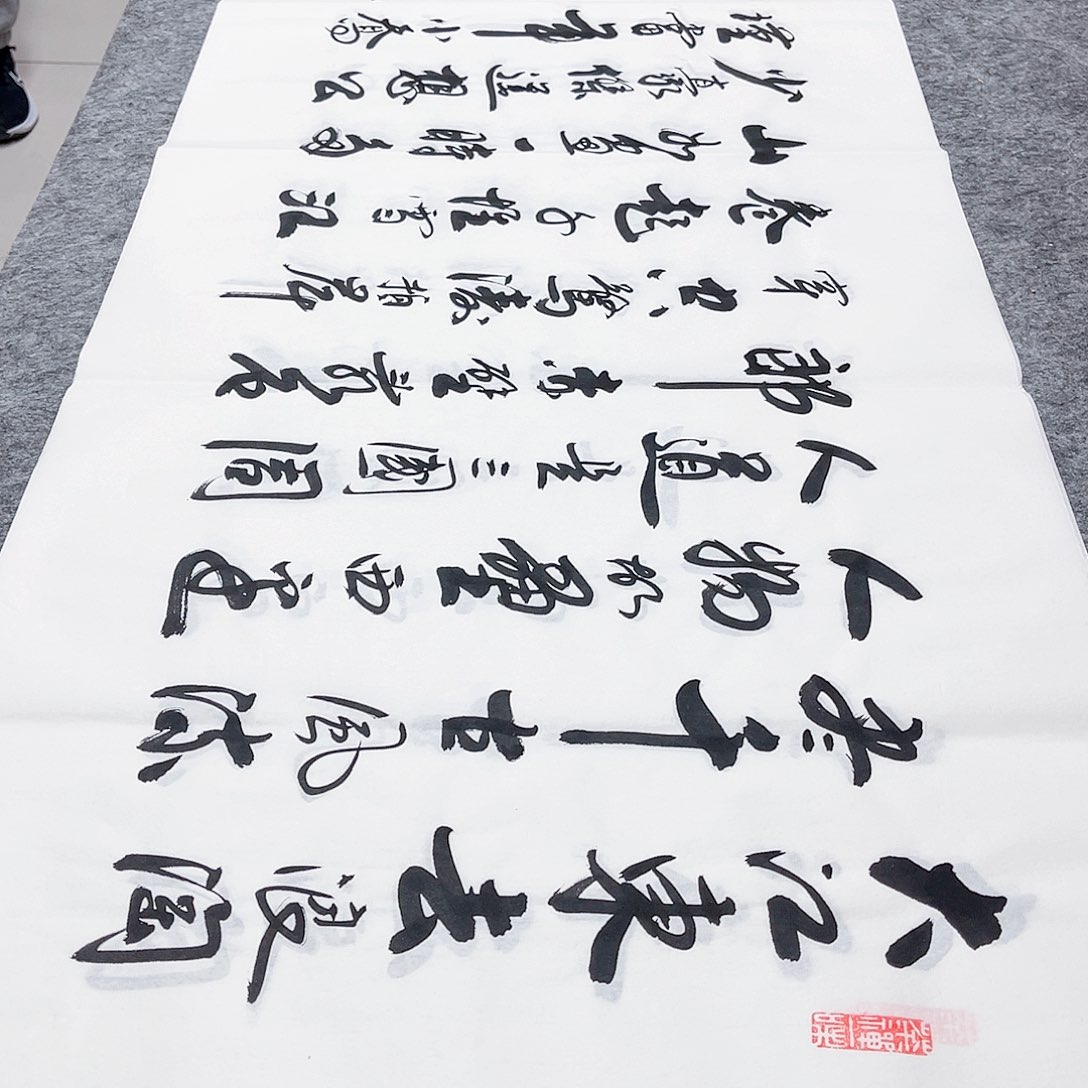 大江東去浪淘
尽千古風流
人物故壘西邊
人道是三國周
郎赤壁亂石
穿空驚濤拍岸
卷起千堆雪江
山如畫一時多
少豪傑遥想公
瑾當年小喬